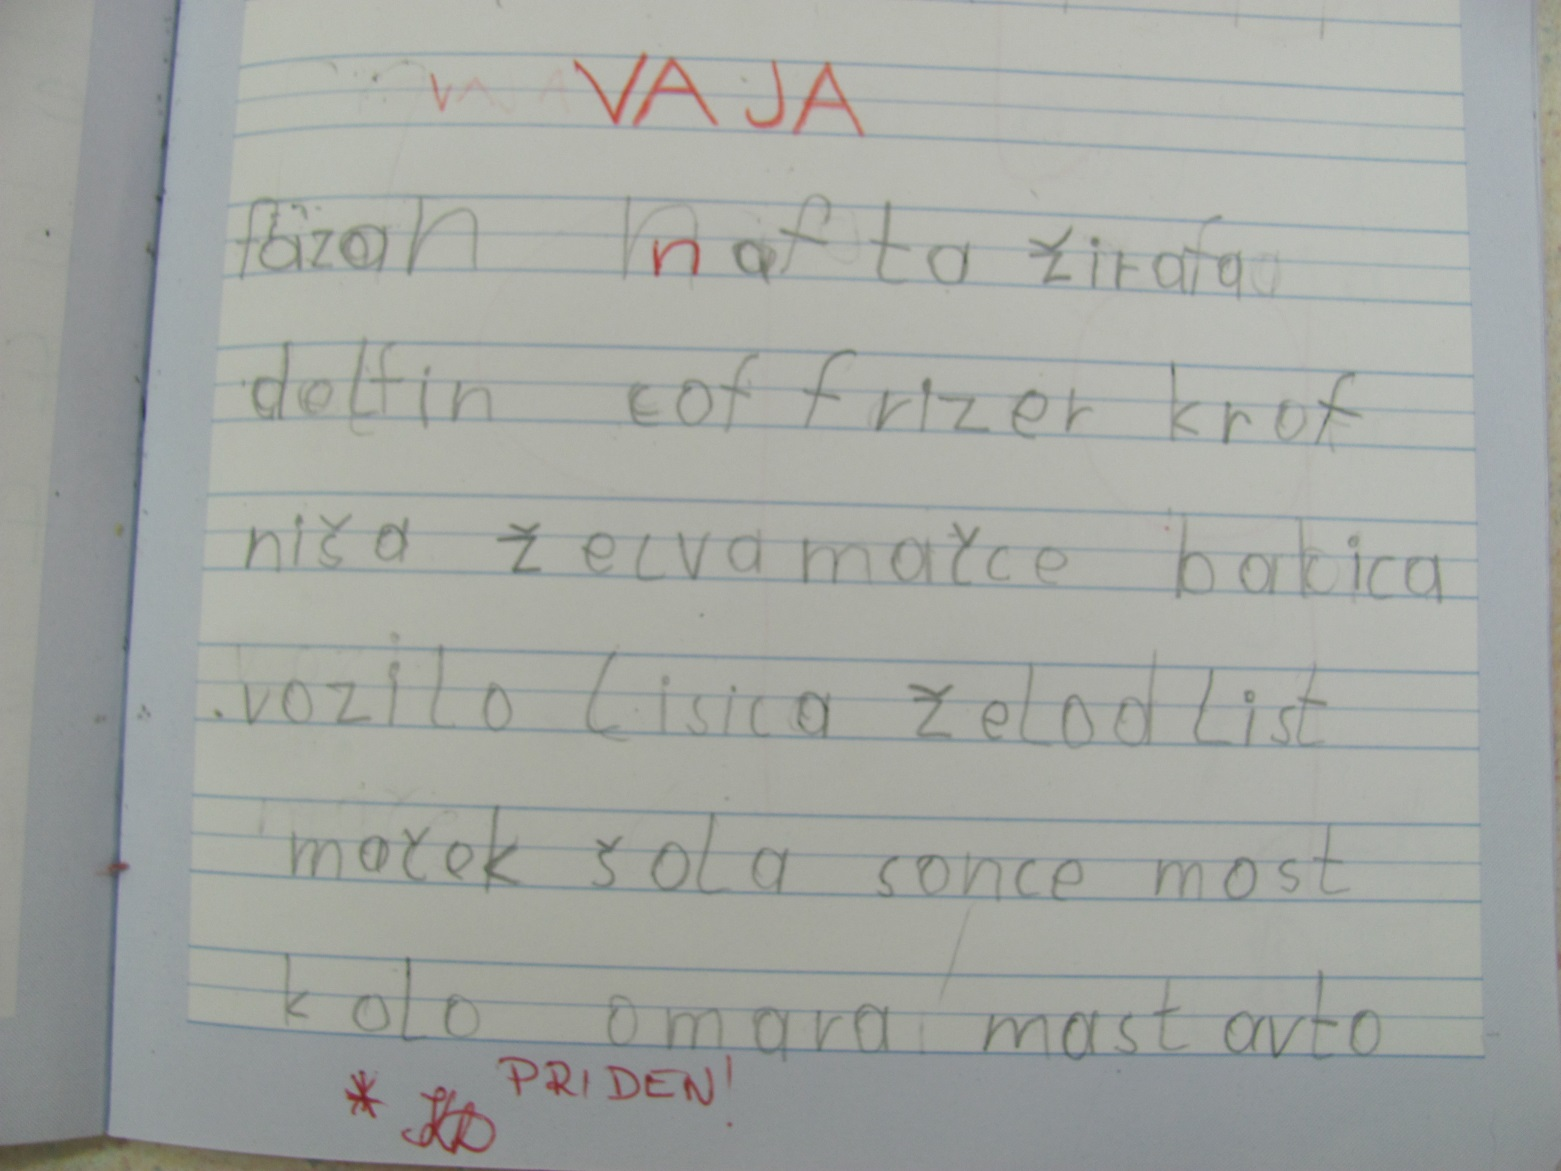 VAJA
fazan nafta žirafa
delfin cof frizer krof
niša želva mačce babica
vozilo lisica želod list
maček šola sonce most
kolo omara mast avto
* PRIDEN!